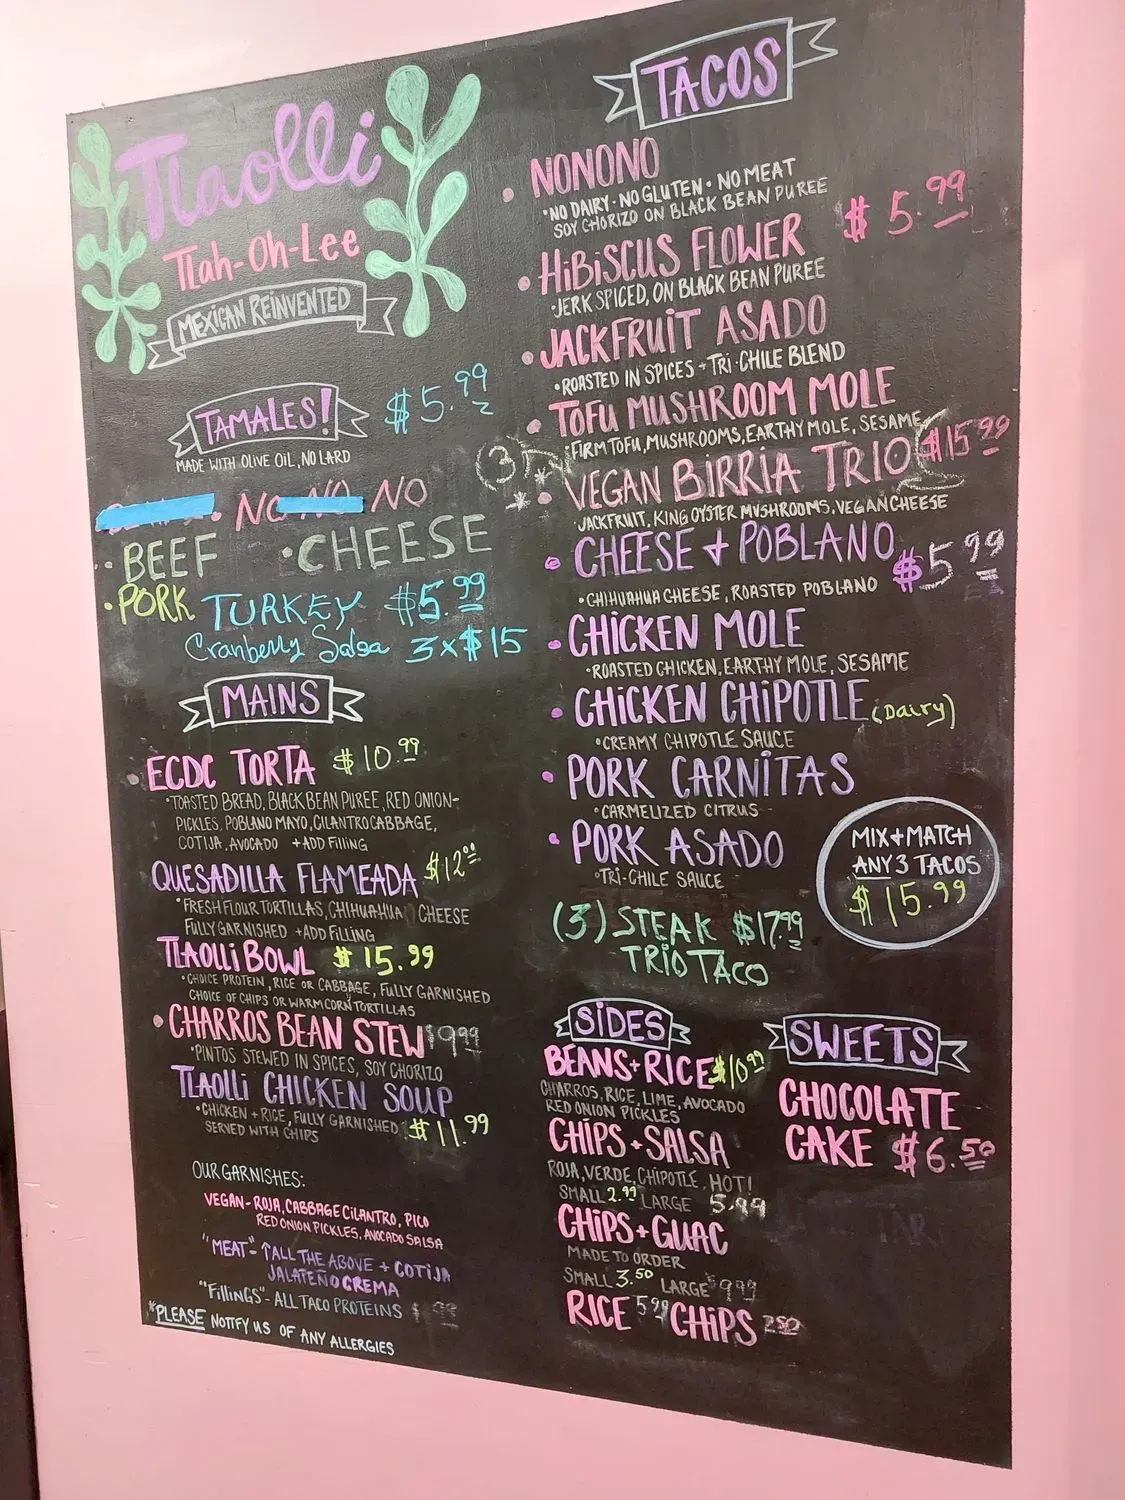 Tlaolli
Tlah-Oh-Lee
MEXICAN REINVENTED
TAMALES! $5.99
MADE WITH OLIVE OIL, NO LARD
NO NO NO
BEEF · CHEESE
· PORK TURKEY $5.99
Cranberry Salsa 3x$15
MAINS
· ECDC TORTA $10.99
· TOASTED BREAD, BLACK BEAN PUREE, RED ONION-
PICKLES, POBLANO MAYO, CILANTRO CABBAGE,
COTIJA, AVOCADO +ADD FILLING
QUESADILLA FLAMEADA $12.00
· FRESH FLOUR TORTILLAS, CHIHUAHUA CHEESE
FULLY GARNISHED +ADD FILLING
TLAOLLI BOWL $15.99
· CHOICE PROTEIN, RICE OR CABBAGE, FULLY GARNISHED
CHOICE OF CHIPS OR WARM CORN TORTILLAS
· CHARROS BEAN STEW $9.99
· PINTOS STEWED IN SPICES, SOY CHORIZO
TLAOLLI CHICKEN SOUP
· CHICKEN + RICE, FULLY GARNISHED $11.99
SERVED WITH CHIPS
OUR GARNISHES:
VEGAN- ROJA, CABBAGE CILANTRO, PICO
RED ONION PICKLES, AVOCADO SALSA
"MEAT"- ↑ALL THE ABOVE + COTIJA
JALATEÑO CREMA
"FILLINGS"- ALL TACO PROTEINS
*PLEASE NOTIFY US OF ANY ALLERGIES
TACOS
· NONONO
· NO DAIRY · NO GLUTEN · NO MEAT
SOY CHORIZO ON BLACK BEAN PUREE $5.99
· HIBISCUS FLOWER
· JERK SPICED, ON BLACK BEAN PUREE
· JACKFRUIT ASADO
· ROASTED IN SPICES + TRI-CHILE BLEND
· TOFU MUSHROOM MOLE
· FIRM TOFU, MUSHROOMS, EARTHY MOLE, SESAME
(3) * * · VEGAN BIRRIA TRIO $15.99
· JACKFRUIT, KING OYSTER MUSHROOMS, VEGAN CHEESE
· CHEESE + POBLANO $5.99
· CHIHUAHUA CHEESE, ROASTED POBLANO
· CHICKEN MOLE
· ROASTED CHICKEN, EARTHY MOLE, SESAME
· CHICKEN CHIPOTLE (Dairy)
· CREAMY CHIPOTLE SAUCE
· PORK CARNITAS
· CARMELIZED CITRUS
· PORK ASADO
· TRI-CHILE SAUCE
MIX + MATCH
ANY 3 TACOS
$15.99
(3) STEAK $17.99
TRIO TACO
SIDES
BEANS + RICE $10.99
CHARROS, RICE, LIME, AVOCADO
RED ONION PICKLES
CHIPS + SALSA
ROJA, VERDE, CHIPOTLE, HOT!
SMALL 2.99 LARGE 5.99
CHIPS + GUAC
MADE TO ORDER
SMALL 3.50 LARGE $9.99
RICE 5.99 CHIPS 2.50
SWEETS
CHOCOLATE
CAKE $6.50